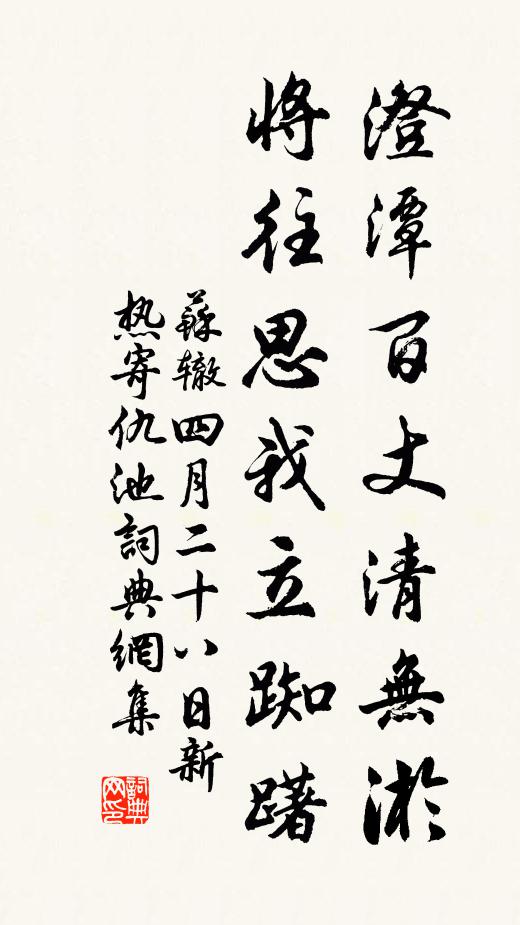 澄潭百丈清無淤
將往思我立踟躇
蘇轍四月二十八日新
热寄仇池詞典網集
詞典
网印